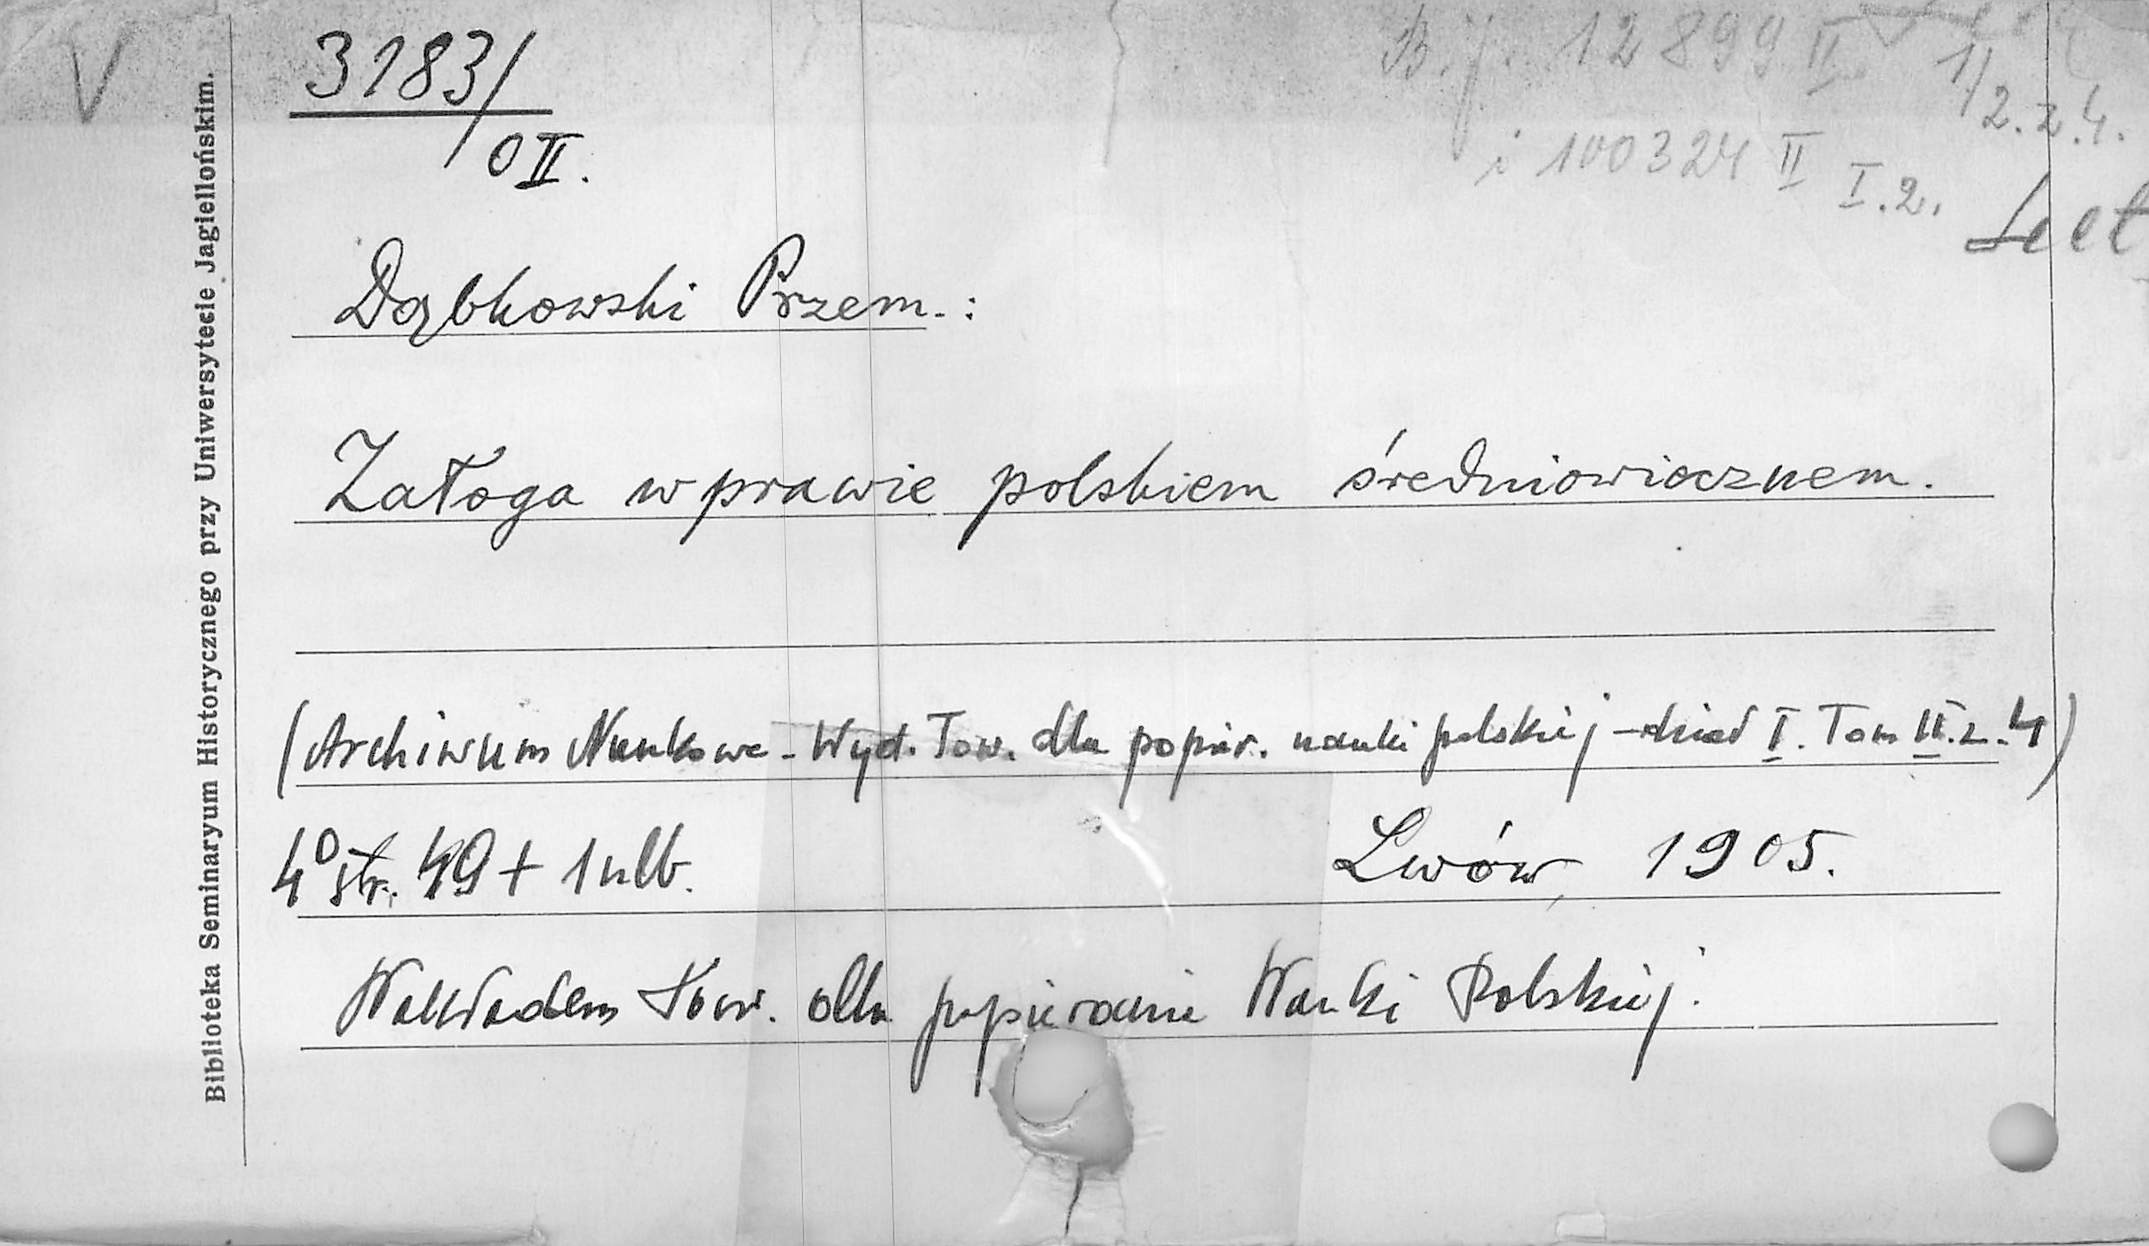 V
3183/
OII.
B. j. 12899 II
1/2. z 4.
i 100324 II I.2.
Dąbkowski Przem.:
Załoga w prawie polskiem średniowiecznem.
(Archiwum Naukowe - Wyd. Tow. dla popier. nauki polskiej - dział I. Tom II. z. 4)
4° str. 49 + 1 nlb.
Lwów, 1905.
Nakładem Tow. dla popierania Nauki Polskiej.
Biblioteka Seminaryum Historycznego przy Uniwersytecie Jagiellońskim.